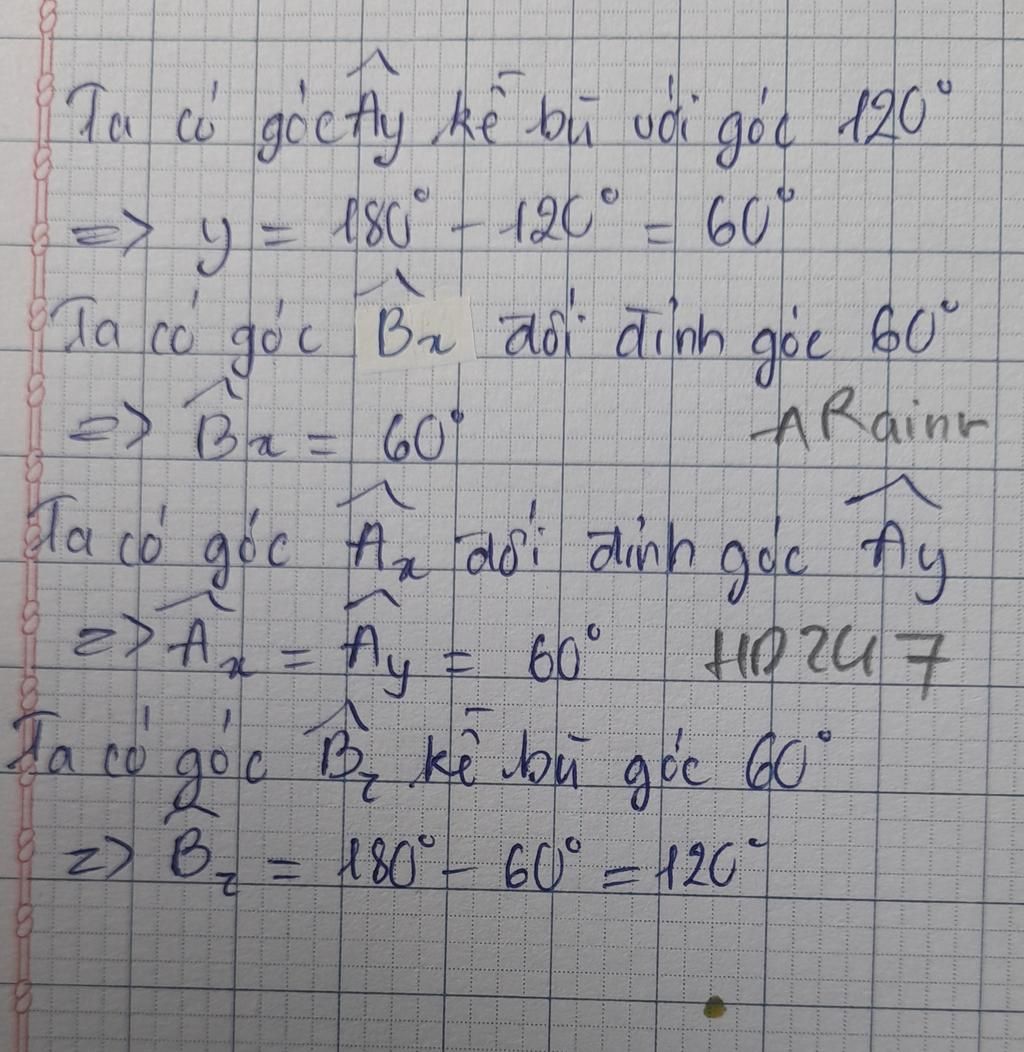 Ta có góc Ây kề bù với góc 120°
=> y = 180° - 120° = 60°
Ta có góc B̂x đối đỉnh góc 60°
=> B̂x = 60°
ARainr
Ta có góc Âx đối đỉnh góc Ây
=> Âx = Ây = 60°
HD247
Ta có góc B̂z kề bù góc 60°
=> B̂z = 180° - 60° = 120°